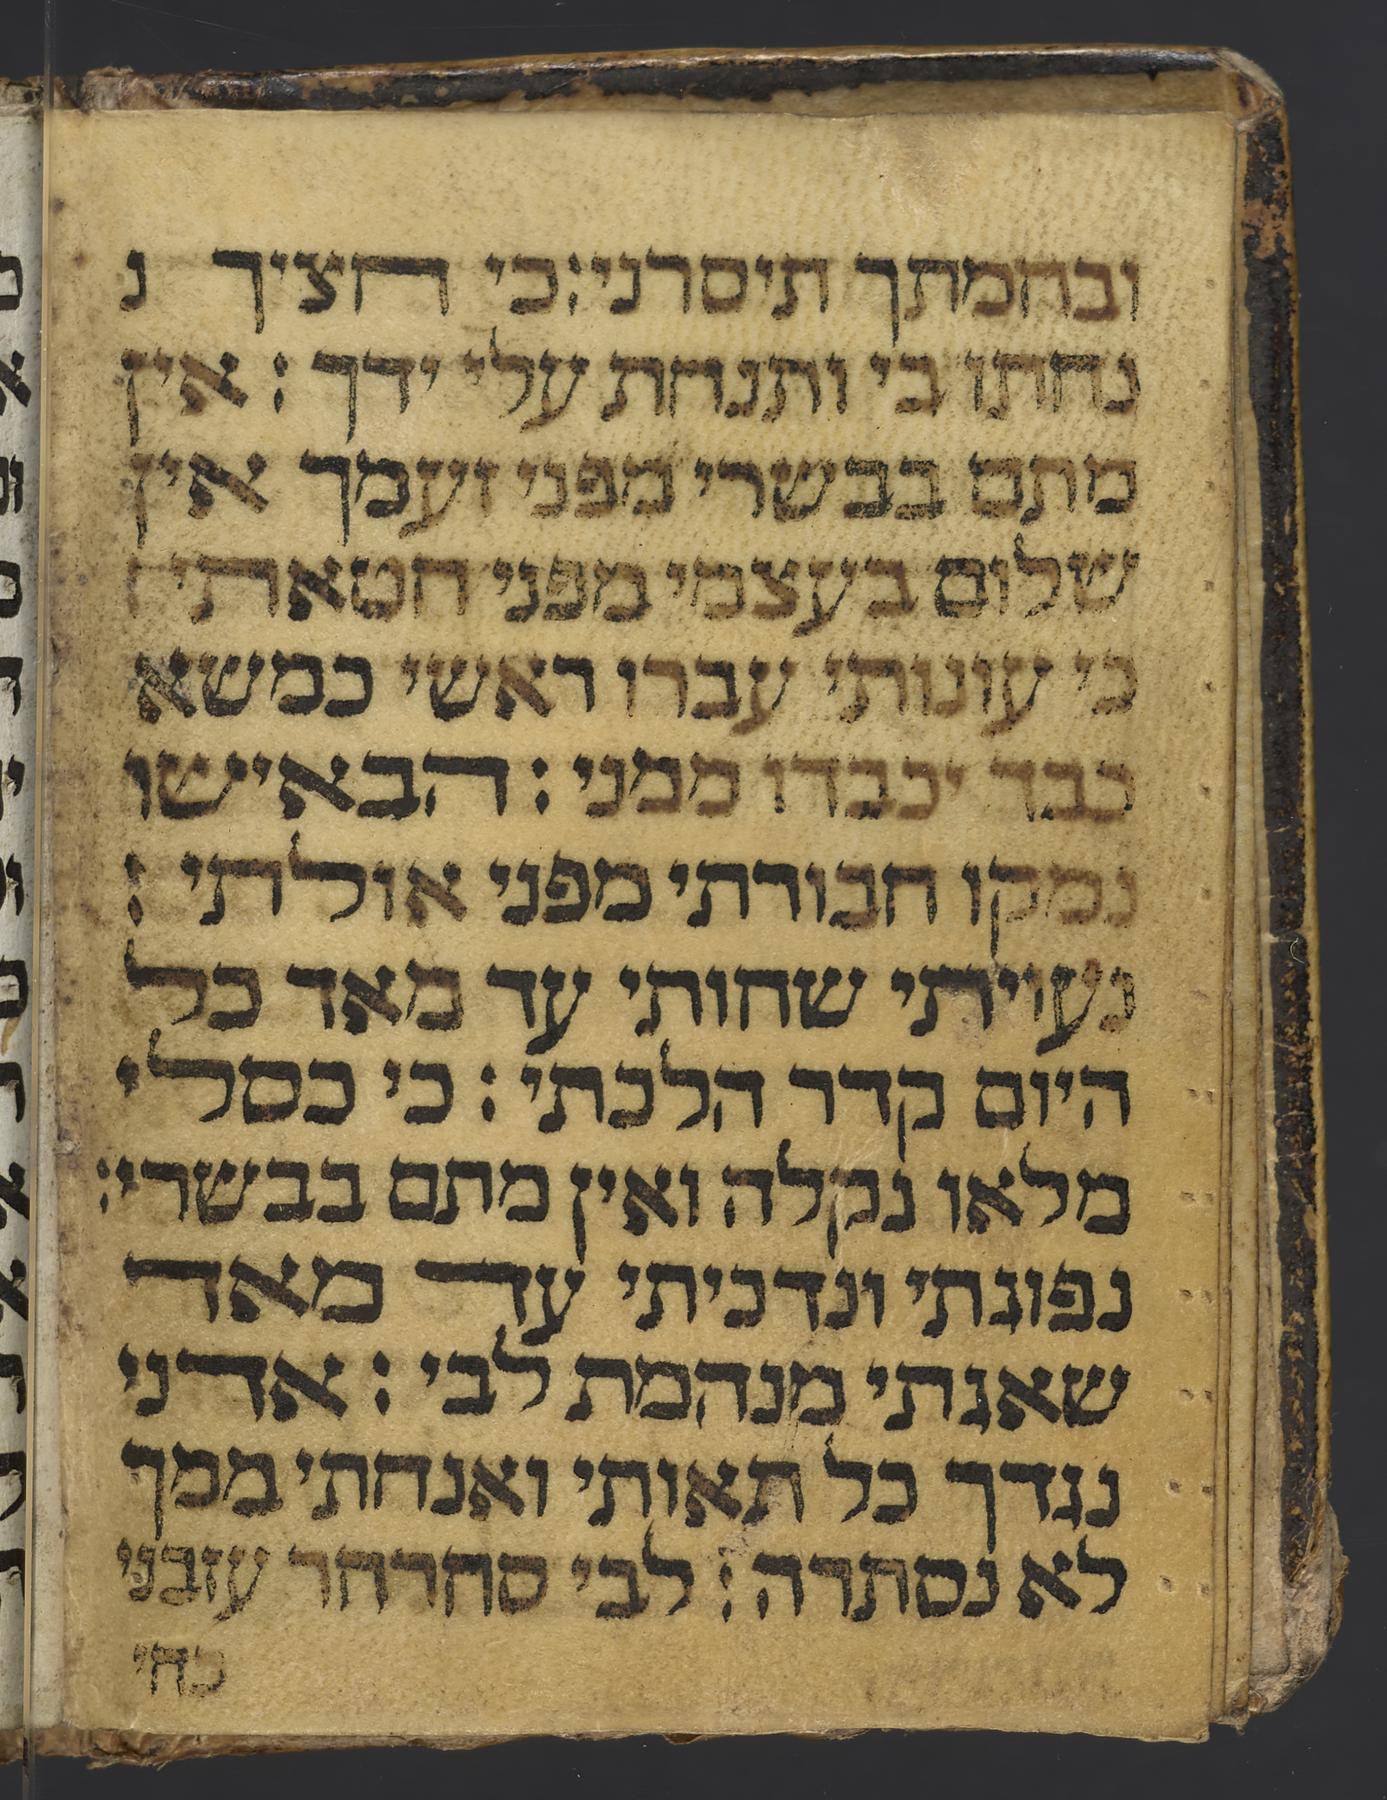 ובחמתך תיסרני: כי חציך נ
נחתו בי ותנחת עלי ידך : אין
מתם בבשרי מפני זעמך אין
שלום בעצמי מפני חטאתי :
כי עונותי עברו ראשי כמשא
כבד יכבדו ממני : הבאישו
נמקו חבורתי מפני אולתי :
נעויתי שחותי עד מאד כל
היום קדר הלכתי : כי כסלי
מלאו נקלה ואין מתם בבשרי:
נפוגתי ונדכיתי עד מאד
שאגתי מנהמת לבי : אדני
נגדך כל תאותי ואנחתי ממך
לא נסתרה : לבי סחרחר עזבני
כחי